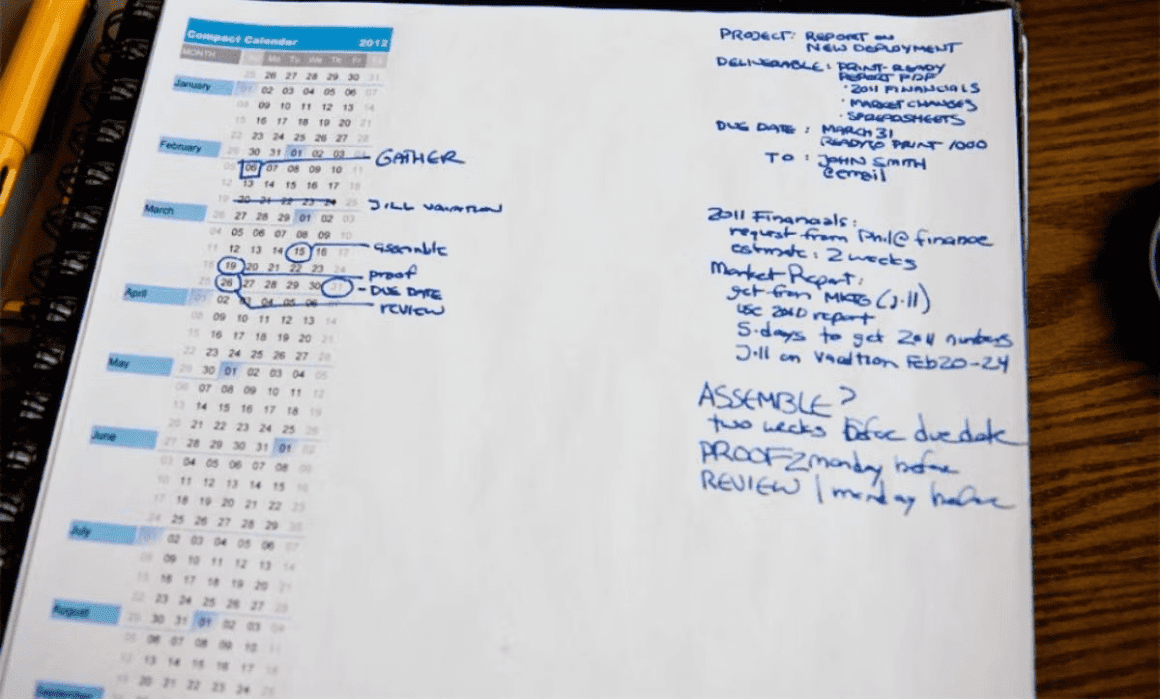 Compact Calendar 2012
MONTH Su Mo Tu We Th Fr Sa
25 26 27 28 29 30 31
January 01 02 03 04 05 06 07
08 09 10 11 12 13 14
15 16 17 18 19 20 21
22 23 24 25 26 27 28
February 29 30 31 01 02 03 04
05 06 07 08 09 10 11 GATHER
12 13 14 15 16 17 18
19 20 21 22 23 24 25 JILL VACATION
March 26 27 28 29 01 02 03
04 05 06 07 08 09 10
11 12 13 14 15 16 17 assemble
18 19 20 21 22 23 24 proof
25 26 27 28 29 30 31 DUE DATE
REVIEW
April 01 02 03 04 05 06 07
08 09 10 11 12 13 14
15 16 17 18 19 20 21
22 23 24 25 26 27 28
May 29 30 01 02 03 04 05
06 07 08 09 10 11 12
13 14 15 16 17 18 19
20 21 22 23 24 25 26
June 27 28 29 30 31 01 02
03 04 05 06 07 08 09
10 11 12 13 14 15 16
17 18 19 20 21 22 23
24 25 26 27 28 29 30
July 01 02 03 04 05 06 07
08 09 10 11 12 13 14
15 16 17 18 19 20 21
22 23 24 25 26 27 28
August 29 30 31 01 02 03 04
05 06 07 08 09 10 11
12 13 14 15 16 17 18
19 20 21 22 23 24 25
September
PROJECT: REPORT ON
NEW DEPLOYMENT
DELIVERABLE: PRINT-READY
REPORT PDF
· 2011 FINANCIALS
· MARKET CHANGES
· SPREADSHEETS
DUE DATE: MARCH 31
READY TO PRINT 1000
TO: JOHN SMITH
@email
2011 Financials:
request from Phil@finance
estimate: 2 weeks
Market Report:
get from MKTG (Jill)
use 2010 report
5-days to get 2011 numbers
Jill on vacation Feb 20-24
ASSEMBLE?
two weeks before due date
PROOF 2 monday before
REVIEW 1 monday before